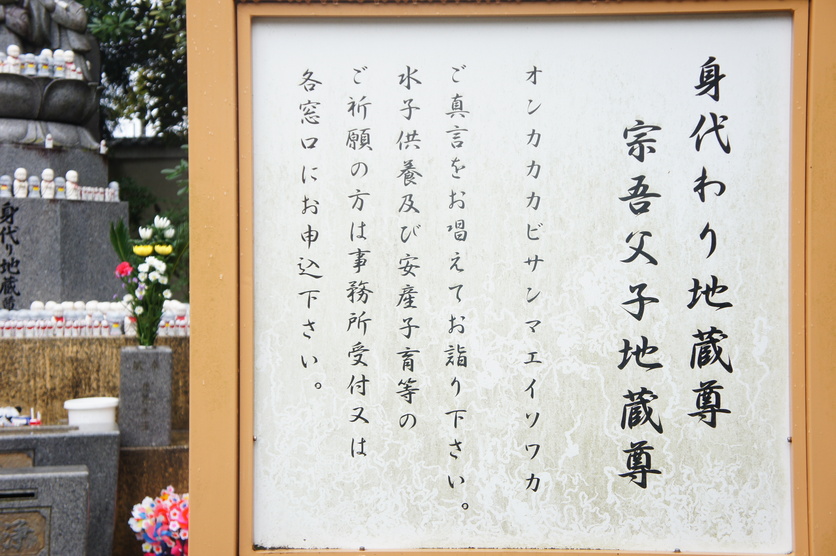 身代わり地蔵尊
宗吾父子地蔵尊
オンカカカビサンマエイソワカ
ご真言をお唱えてお詣り下さい。
水子供養及び安産子育等の
ご祈願の方は事務所受付又は
各窓口にお申込下さい。
身代り地蔵尊